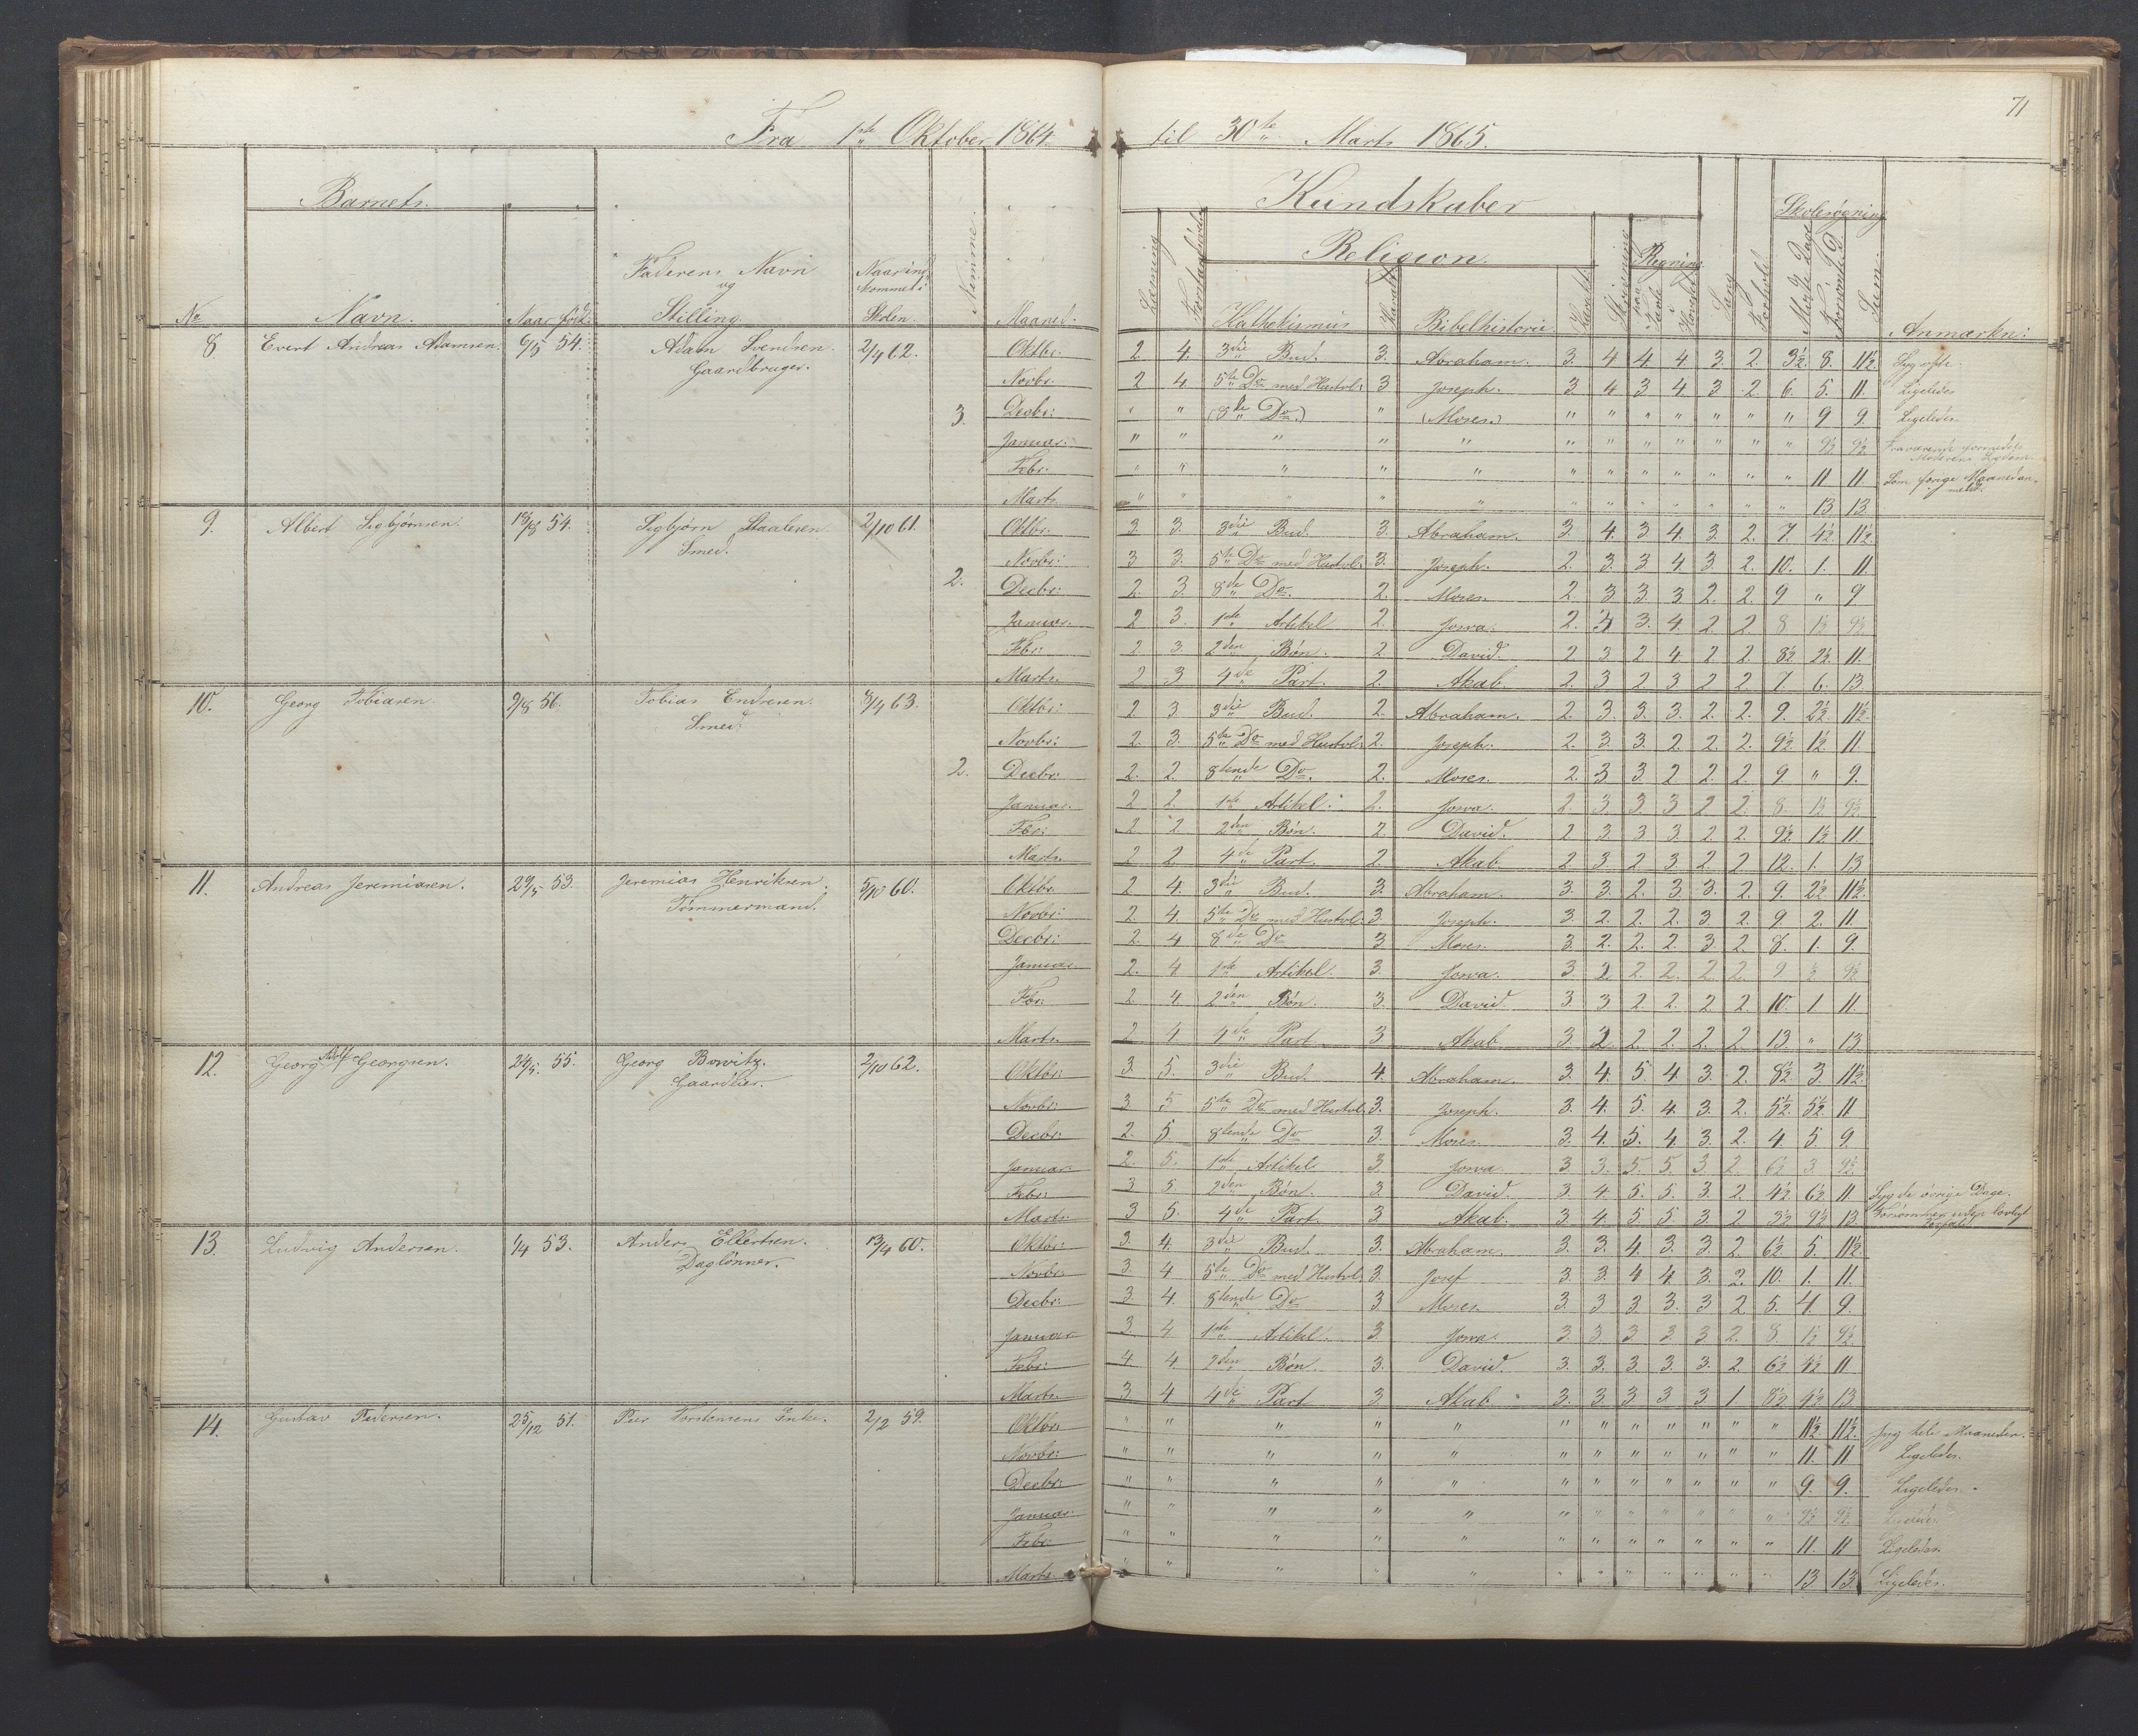 71
Fra 1ste Oktober 1864 til 30te Marts 1865.
Barnets Kundskaber Skolesøgning
Religion Regning
No Navn. Naar født. Faderens Navn og Stilling. Naar indkommet i Skolen. Nemme. Maaned. Læsning Forstandsøvelse Kathekismus Karakter Bibelhistorie Karakt. Skrivning Paa Tavle i Hovedet Sang Forhold Mødte Dage Forsømte D. Sum. Anmærkn:
8 Evert Andreas Adamsen 6/5 54. Adam Svendsen. Gaardbruger. 2/4 62. 3.
Oktbr: 2. 4. 3die Bud. 3. Abraham. 3. 4 4. 4 3. 2. 3½ 8. 11½ Syg ofte.
Novbr. 2 4. 5te Do med Hustvl: 3 Joseph. 3. 4 3 4 3 2. 6. 5. 11. Ligeledes
Decbr: " " (8de Do) " (Moses.) " " " " " " " 9 9. Ligeledes.
Januar. " " " " " " " " " " " " 9½ 9½ Fraværende formedelst Moderens Sygdom.
Febr. " " " " " " " " " " " " 11 11. Som forige Maaned anmeldt.
Marts. " " " " " " " " " " " " 13 13
9. Albert Sigbjørnsen 18/8 54. Sigbjørn Staalesen. Smed. 2/10 61. 2.
Oktbr. 3 3. 3die Bud. 3. Abraham. 3. 4. 3 4. 3. 2. 7 4½ 11½
Novbr: 3 3. 5te Do med Hustvl: 3. Joseph. 2. 3. 3 4 3. 2. 10. 1. 11.
Decbr: 2. 3. 8de Do. 2. Moses. 2. 3 3 3 2. 2. 9 " 9
Januar. 2 3. 1ste Artikel 2. Josva. 2. 3 3. 4. 2. 2 8 1½ 9½
Febr: 2 3 2den Bøn. 2. David. 2 3 2 4 2 2. 8½ 2½ 11.
Marts. 2 3 4de Part. 2. Akab. 2. 3 2. 3 2 2 7. 6. 13.
10. Georg Tobiasen. 9/8 56. Tobias Endresen. Smed. 3/4 63. 2.
Oktbr: 2 3. 3die Bud. 2. Abraham. 2. 3. 3. 3. 2. 2. 9. 2½ 11½
Novbr: 2. 3. 5te Do med Hustvl: 2. Joseph. 2. 3. 3. 2 2. 2. 9½ 1½ 11.
Decbr: 2. 2. 8tende Do. 2. Moses. 2. 3 3. 2 2. 2. 9 " 9.
Januar. 2 2. 1ste Artikel. 2. Josva. 2. 3. 3. 3 2 2. 8. 1½ 9½
Febr: 2 2 2den Bøn. 2 David. 2 3 3 3. 2 2. 9½ 1½ 11.
Marts. 2 2 4de Part. 2. Akab 2. 3 2 3. 2 2 12. 1. 13
11. Andreas Jeremiasen. 29/5 53. Jeremias Henriksen. Tømmermand. 5/10 60.
Oktbr. 2 4. 3die Bud. 3. Abraham. 3. 3. 2. 3 3. 2 9. 2½ 11½
Novbr: 2. 4. 5te Do med Hustvl: 3. Joseph. 3. 2. 2. 2. 3 2. 9. 2. 11.
Decbr: 2. 4 8de Do 3 Moses. 3. 2. 2. 2. 3 2. 8. 1. 9.
Januar. 2. 4 1ste Artikel. 3. Josva. 3. 2. 2. 2. 2. 2. 9 ½ 9½
Febr: 2 4 2den Bøn. 3. David. 3 3 2 2. 2 2 10. 1 11.
Marts. 2 4 4de Part. 3 Akab. 3 2. 2 2. 2 2 13. " 13
12. Georg Adolf Georgsen. 24/5. 55. Georg Bowitz. Gaardeier. 2/10 62.
Oktbr: 3. 5. 3die Bud. 4. Abraham. 3. 4. 5. 4 3. 2. 8½ 3. 11½
Novbr: 3 5 5te Do med Hustvl: 3. Joseph. 3. 4. 5. 4. 3. 2. 5½ 5½ 11
Decbr: 2. 5 8tende Do 3. Moses. 3. 4. 5. 4 3. 2 4 5. 9.
Januar. 2. 5. 1ste Artikel. 3. Josva. 3 3. 5. 5. 3. 2. 6½ 3. 9½
Febr: 3 5 2den Bøn. 3 David. 3. 4. 5. 5. 3. 2 4½ 6½ 11 Syg de øvrige Dage.
Marts. 3 5. 4de Part. 3 Akab. 3. 4. 5 5 3. 2 3½ 9½ 13. Forsømmer uden lovligt Forfald.
13. Ludvig Andersen. 1/4 53. Anders Ellertsen. DagløNner. 13/4 60.
Oktbr: 3. 4. 3die Bud. 3. Abraham. 3. 3. 4. 3. 3. 2. 6½ 5. 11½
Novbr: 3. 4 5te Do med Hustvl: 3. Josef 3. 3. 4 4. 3. 2. 10. 1. 11.
Decbr: 3. 4. 8tende Do 3. Moses. 3. 3 3 3. 3 2 5. 4. 9.
Januar 3. 4 1ste Artikel. 3. Josva. 3. 3 3 3. 3 2. 8 1½ 9½
Febr: 4 4. 2den Bøn. 3. David. 3. 3. 3. 3. 3. 2. 6½ 4½ 11
Marts. 3 4 4de Part 3 Akab 3. 3 3 3 3 1. 8½ 4½ 13
14. Gustav Pedersen. 25/12 51. Peer Torstensens Enke. 2/12 59.
Oktbr. " " " " " " " " " " " " 11½ 11½ Syg hele Maaneden.
Novbr: " " " " " " " " " " " " 11. 11 Ligeledes.
Decbr: " " " " " " " " " " " " 9. 9. Ligeledes.
Januar. " " " " " " " " " " " " 9½ 9½ Ligeledes.
Febr: " " " " " " " " " " " " 11. 11 Ligeledes.
Marts. " " " " " " " " " " " " 13 13 Ligeledes.